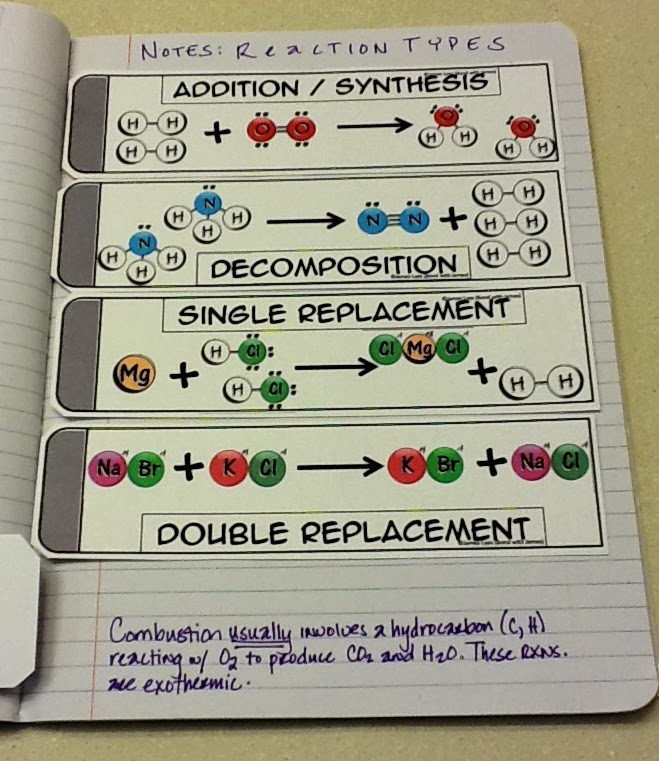 NOTES: REACTION TYPES
ADDITION / SYNTHESIS
H H + O O → O H H O H H
H H
N H H H N H H H → N N + H H
H H
H H
DECOMPOSITION
SINGLE REPLACEMENT
Mg + H Cl → Cl Mg Cl + H H
H Cl
Na Br + K Cl → K Br + Na Cl
DOUBLE REPLACEMENT
Combustion usually involves a hydrocarbon (C, H)
reacting w/ O2 to produce CO2 and H2O. These RXNS.
are exothermic.